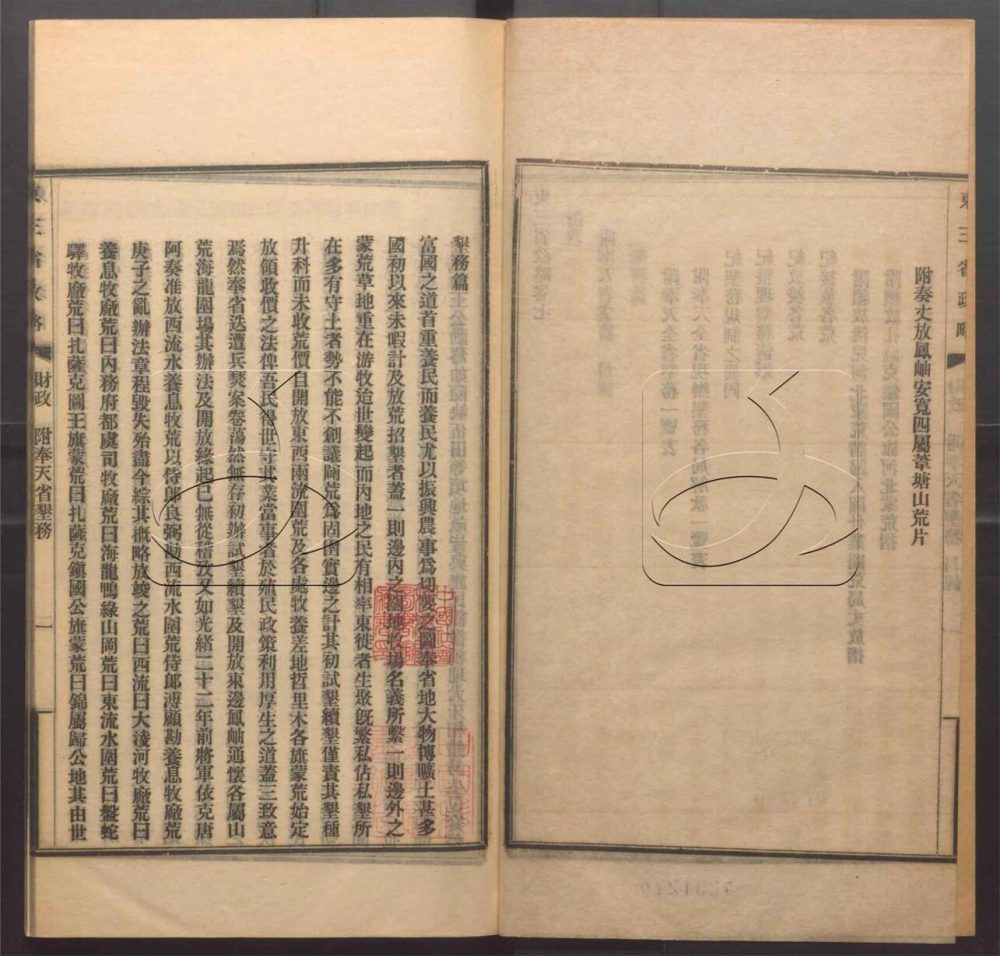 東三省政略
附奏丈放鳳岫安寬四屬葦塘山荒片
墾務篇
富國之道首重養民而養民尤以振興農事爲切要之圖奉省地大物博曠土甚多
國初以來未暇計及放荒招墾者蓋一則邊內之圍地牧場名義所繫一則邊外之
蒙荒草地重在游牧迨世變起而內地之民有相率東徙者生聚旣繁私佔私墾所
在多有守土者勢不能不創議闢荒爲固圉實邊之計其初試墾續墾僅責其墾種
升科而未收荒價自開放東西兩流圍荒及各處牧養差地哲里木各旗蒙荒始定
放領收價之法俾吾民得世守其業當事者於殖民政策利用厚生之道蓋三致意
焉然奉省迭遭兵燹案卷蕩然無存初辦試墾續墾及開放東邊鳳岫通懷各屬山
荒海龍圍場其辦法及開放緣起已無從稽攷又如光緒二十二年前將軍依克唐
阿奏准放西流水養息牧荒以侍郎良弼勘西流水圍荒侍郎溥顧勘養息牧廠荒
庚子之亂辦法章程毀失殆盡今綜其概略放竣之荒曰西流曰大淩河牧廠荒曰
養息牧廠荒曰內務府都虞司牧廠荒曰海龍鴨綠山岡荒曰東流水圍荒曰盤蛇
驛牧廠荒曰扎薩克圖王旗蒙荒曰扎薩克鎮國公旗蒙荒曰錦屬歸公地其由世
東三省政略
財政 附奉天省墾務
一